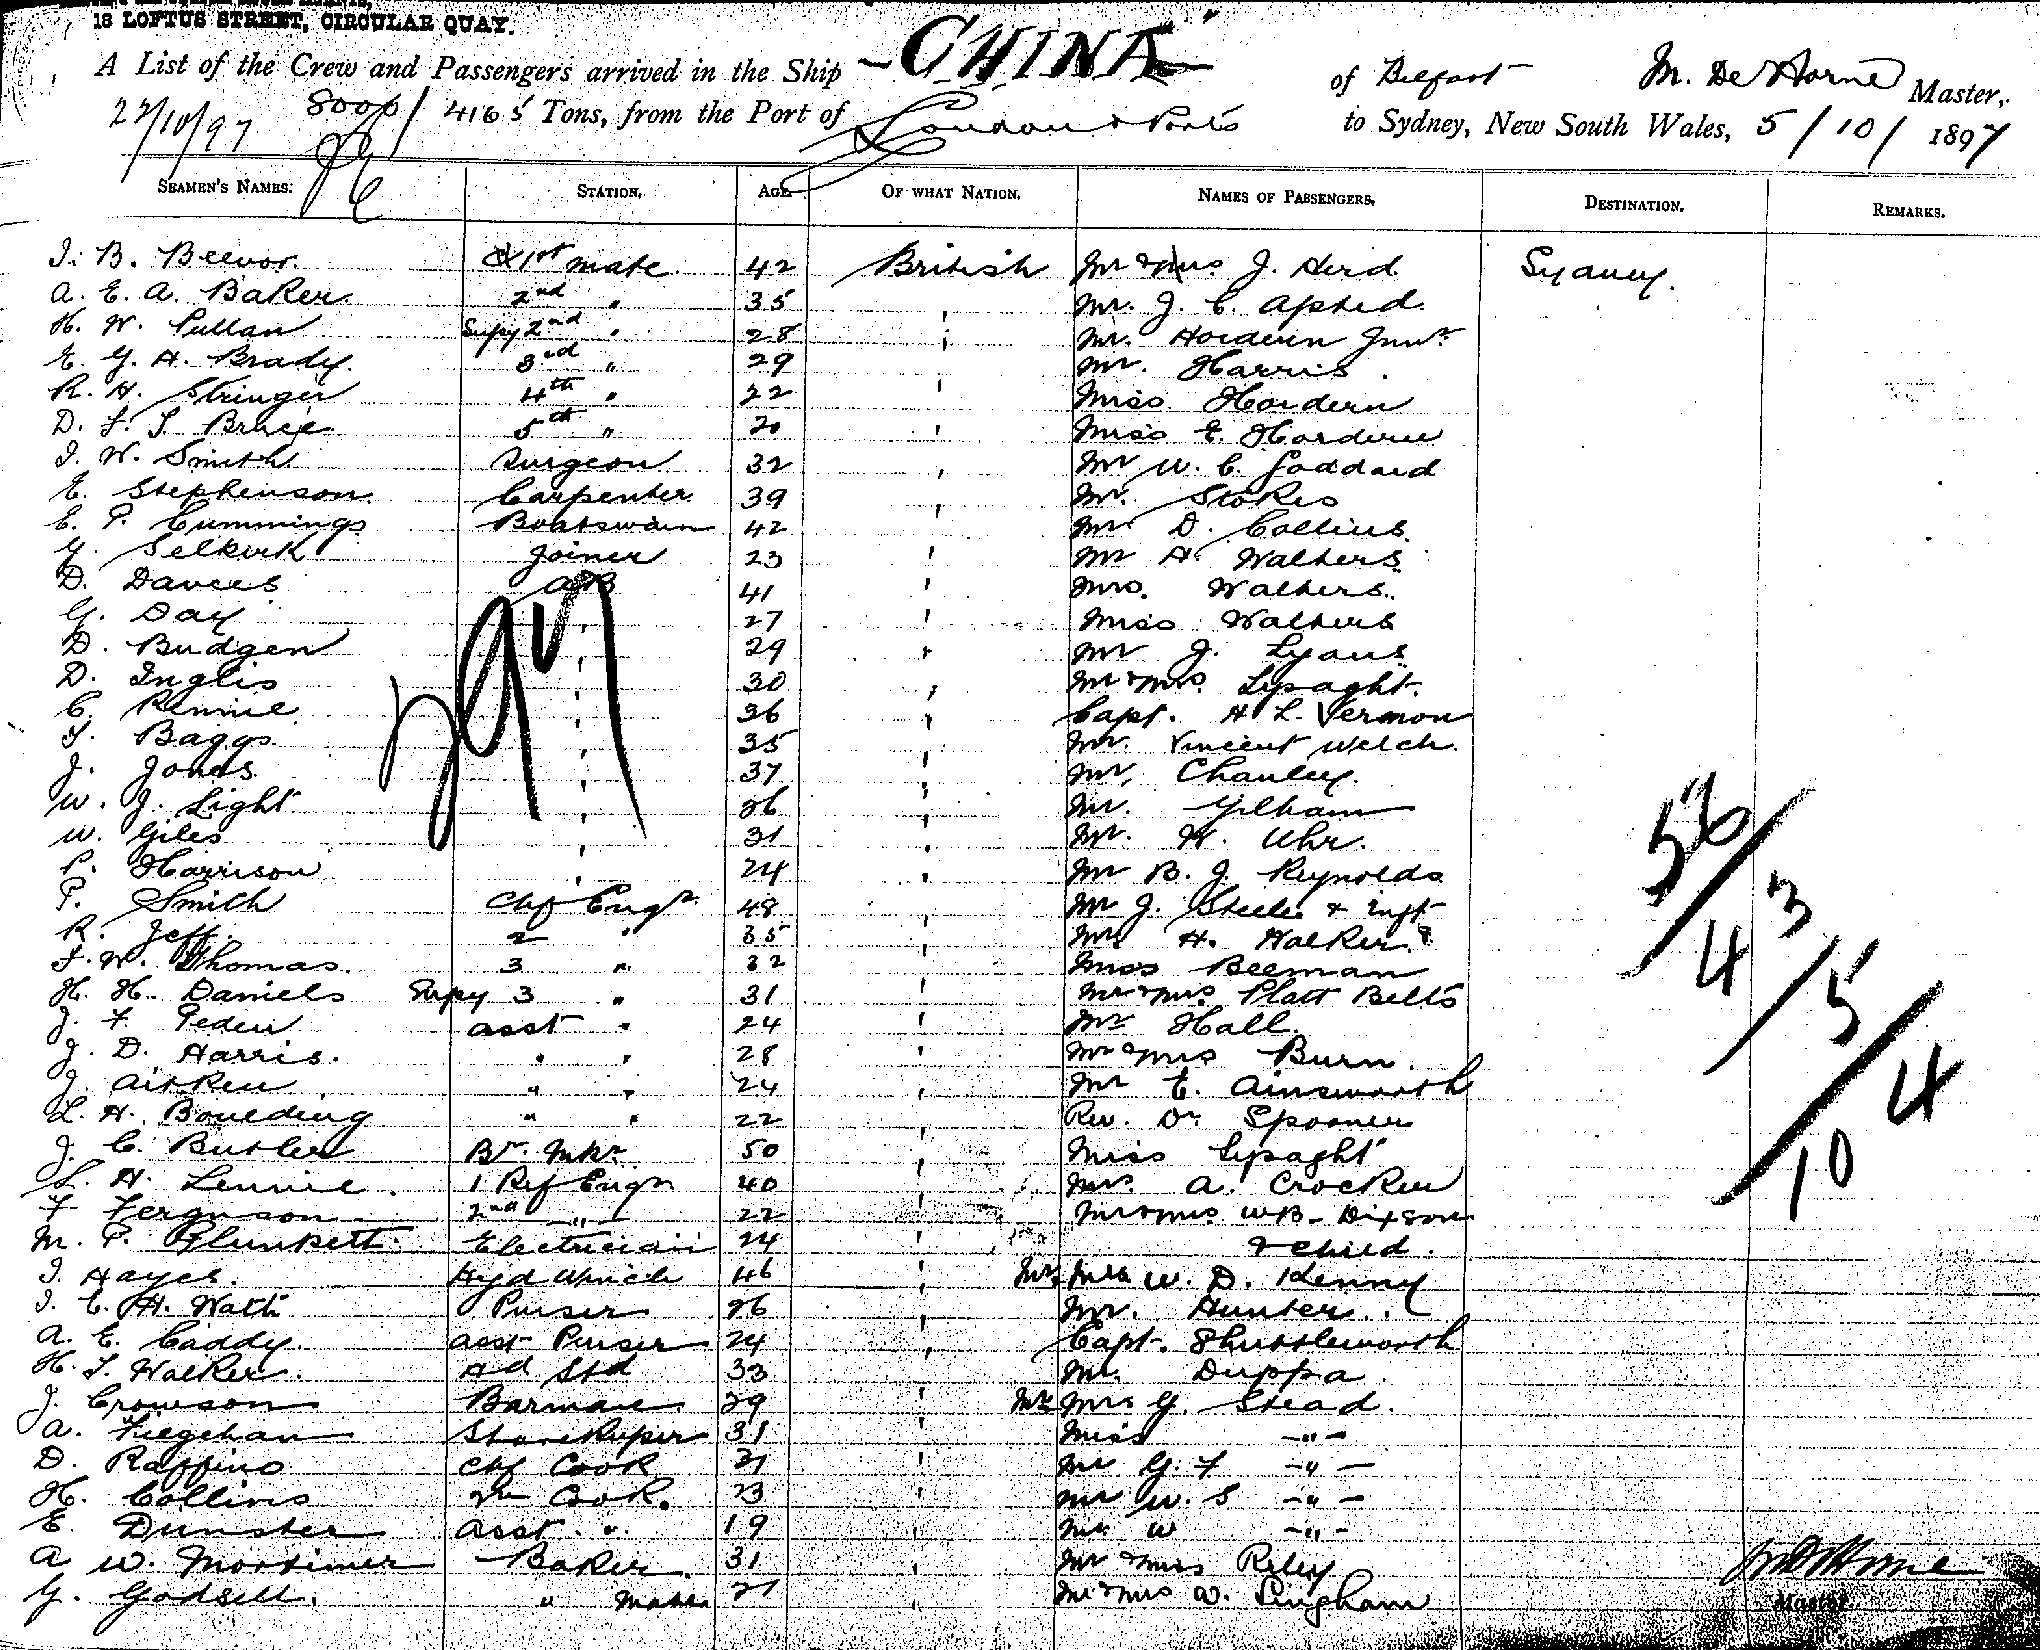 18 LOFTUS STREET, CIRCULAR QUAY.
A List of the Crew and Passengers arrived in the Ship - CHINA - of Belfast M. De Horne Master,
22/10/97 8000/4165 Tons, from the Port of London & Ports to Sydney, New South Wales, 5/10/1897
SEAMEN'S NAMES. STATION. AGE OF WHAT NATION. NAMES OF PASSENGERS. DESTINATION. REMARKS.
I. B. Beevor. 1st mate 42 British Mr & Mrs J. Herd Sydney.
A. E. A. Baker 2nd " 35 Mr. J. C. Apted.
H. W. Pullan Supy 2nd " 28 Mr. Hordern Junr.
E. G. H. Brady. 3rd " 29 Mr. Harris.
R. H. Stringer 4th " 22 Miss Hordern
D. F. S. Bruce 5th " 20 Miss E. Hordern
I. W. Smith Surgeon 32 Mr W. C. Goddard
E. Stephenson Carpenter 39 Mr. Stokes
E. P. Cummings Boatswain 42 Mr D. Collins.
G. Selkirk Joiner 23 Mr H. Walters
D. Davies AB 41 Mrs. Walters.
G. Day " 27 Miss Walters
D. Budgen " 29 Mr J. Lyons
D. Inglis " 30 Mr & Mrs. Lysaght.
C. Rennie " 36 Capt. H. L. Vernon
Baggs " 35 Mr. Vincent Welch.
J. Jones " 37 Mr. Chanley.
W. J. Light " 26 Mr. Gilham
W. Giles " 31 Mr. W. Uhr.
P. Harrison " 24 Mr B. J. Reynolds
P. Smith Chf Engr. 48 Mr J. Steele & Inft
R. Jeff. 2 " 35 Mr H. Walker.
F. W. Thomas. 3 " 32 Miss Beeman
H. H. Daniels Supy 3 " 31 Mr & Mrs Platt Betts
J. F. Peden asst " 24 Mr Hall.
J. D. Harris. " " 28 Mr & Mrs Burn
J. Aitken " " 24 Mr E. Ainsworth
L. H. Boulding " " 22 Rev. Dr. Spooner
J. C. Butler Br. Mkr. 50 Miss Lysaght
L. H. Lennie. 1 Ref Engr 40 Mr. A. Crocker
F Ferguson 2nd " 22 Mr & Mrs W B. Dixson
M. P. Plunkett. Electrician 24 & child.
I. Hayes. Hyd Winch 46 Mr. Mrs W. D. Kenny
I. C. H. Watt Purser 26 Mr. Hunter.
A. E. Caddy. asst Purser 24 Capt. Shuttleworth
H. S. Walker. Hd Std 33 Mr. Duppa
J. Crowson Barman 29 Mr. Mrs G. Stead.
A. Fieghan Storekeeper 31 Miss -"-
D. Raffino Chf Cook 21 Mr G. F -"-
H. Collins 2nd Cook. 23 Mr W. S -"-
E. Dunster asst. " 19 Mr W -"-
A W. Mortimer Baker. 31 Mr & Mrs Riley
G. Godsell. " Mate 21 Mr & Mrs W. Pingham
56/4
3/5
4/10
M De Horne
Master.